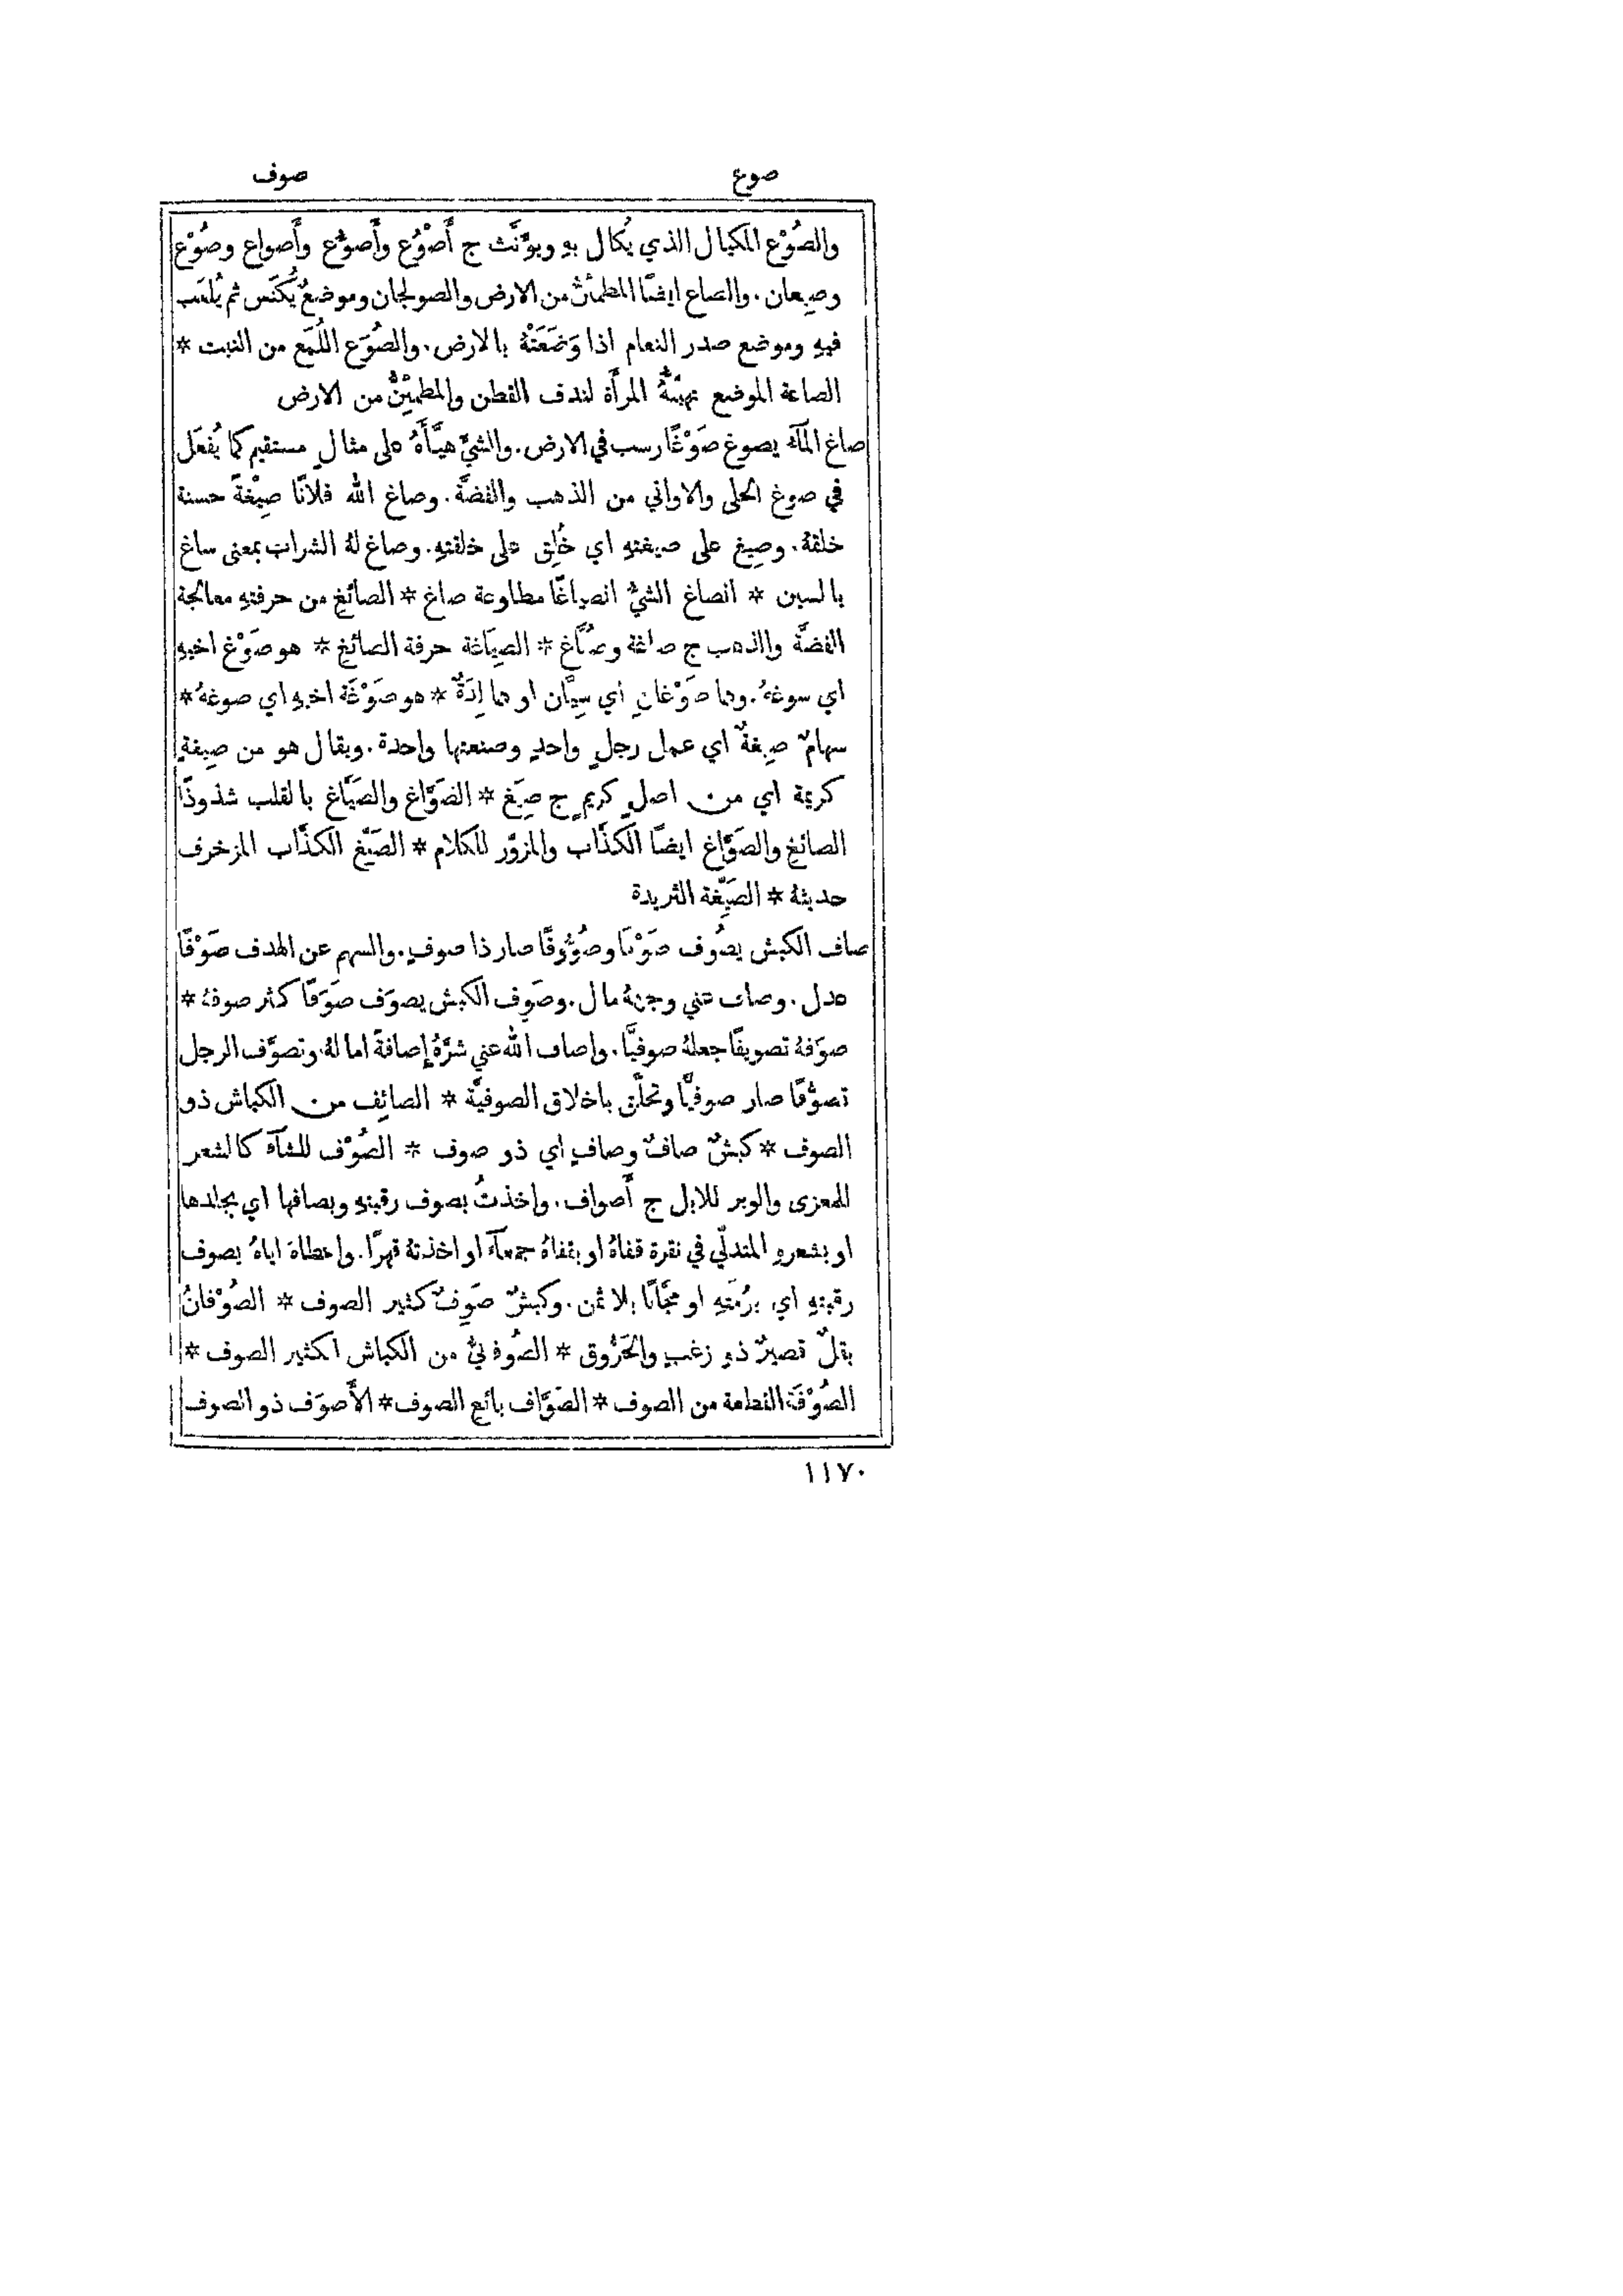 صوع صوف
والصُوْع المكيال الذي يُكال بهِ ويؤَنَّث ج أَصْوُع وأَصؤُع وأَصواع وصُوْع
وصِيعان. والصاع ايضًا المطمئنُّ من الارض والصولجان وموضعٌ يُكنَس ثم يُلعَب
فيهِ وموضع صدر النعام اذا وَضَعَتْهُ بالارض. والصُوَع اللُمَع من النبت *
الصاعة الموضع تهيّئهُ المرأَة لندف القطن والمطمئِنُّ من الارض
صاغ المآءُ يصوغ صَوْغًا رسب في الارض. والشيَّ هيَّأَهُ على مثالٍ مستقيم كما يُفعَل
في صوغ الحلى والاواني من الذهب والفضَّة. وصاغ الله فلانًا صِيْغةً حسنة
خلقهُ. وصِيغ على صيغتهِ اي خُلِق على خلقتهِ. وصاغ لهُ الشراب بمعنى ساغ
بالسين * انصاغ الشيُّ انصياغًا مطاوعة صاغ * الصائغ من حرفتهِ معالجة
الفضَّة والذهب ج صاغة وصُيَّاغ * الصِيَاغة حرفة الصائغ * هو صَوْغ اخيهِ
اي سوغهُ. وهما صَوْغانِ اي سِيَّان او هما لِدَةٌ * هو صَوْغَة اخيهِ اي صوغهُ *
سهامٌ صِيغةٌ اي عمل رجلٍ واحدٍ وصنعتها واحدة. ويقال هو من صِيغةٍ
كريمة اي من اصلٍ كريمٍ ج صِيَغ * الصَوَّاغ والصَيَّاغ بالقلب شذوذًا
الصائغ والصَوَّاغ ايضًا الكذَّاب والمزوّر للكلام * الصَيّغ الكذَّاب المزخرف
حديثهُ * الصَيِّغة الثريدة
صاف الكبش يصُوف صَوْفًا وصُؤُوفًا صار ذا صوفٍ. والسهم عن الهدف صَوْفًا
عدل. وصاف عني وجهُهُ مال. وصَوِف الكبش يصوَف صَوَفًا كثر صوفهُ *
صوَّفهُ تصويفًا جعلهُ صوفيًّا. واصاف الله عني شرَّهُ إِصافةً امالهُ. وتصوَّف الرجل
تصوُّفًا صار صوفيًّا وتخلَّق باخلاق الصوفيَّة * الصائِف من الكباش ذو
الصوف * كبشٌ صافٌ وصافٍ اي ذو صوف * الصُوْف للشآءِ كالشعر
للمعزى والوبر للابل ج أَصواف. واخذتُ بصوف رقبتهِ وبصافها اي بجلدها
او بشعرهِ المتدلّي في نقرة قفاهُ او بقفاهُ جمعآءَ او اخذتهُ قهرًا. واعطاهُ اياهُ بصوف
رقبتهِ اي برُمَّتهِ او مجَّانًا بلا ثمن. وكبشٌ صَوِفٌ كثير الصوف * الصُوْفانُ
بقلٌ قصيرٌ ذو زغبٍ والحَرُّوق * الصُوفانيُّ من الكباش الكثير الصوف *
الصُوْفَة القطعة من الصوف * الصَوَّاف بائع الصوف * الأَصوَف ذو الصوف
١١٧٠